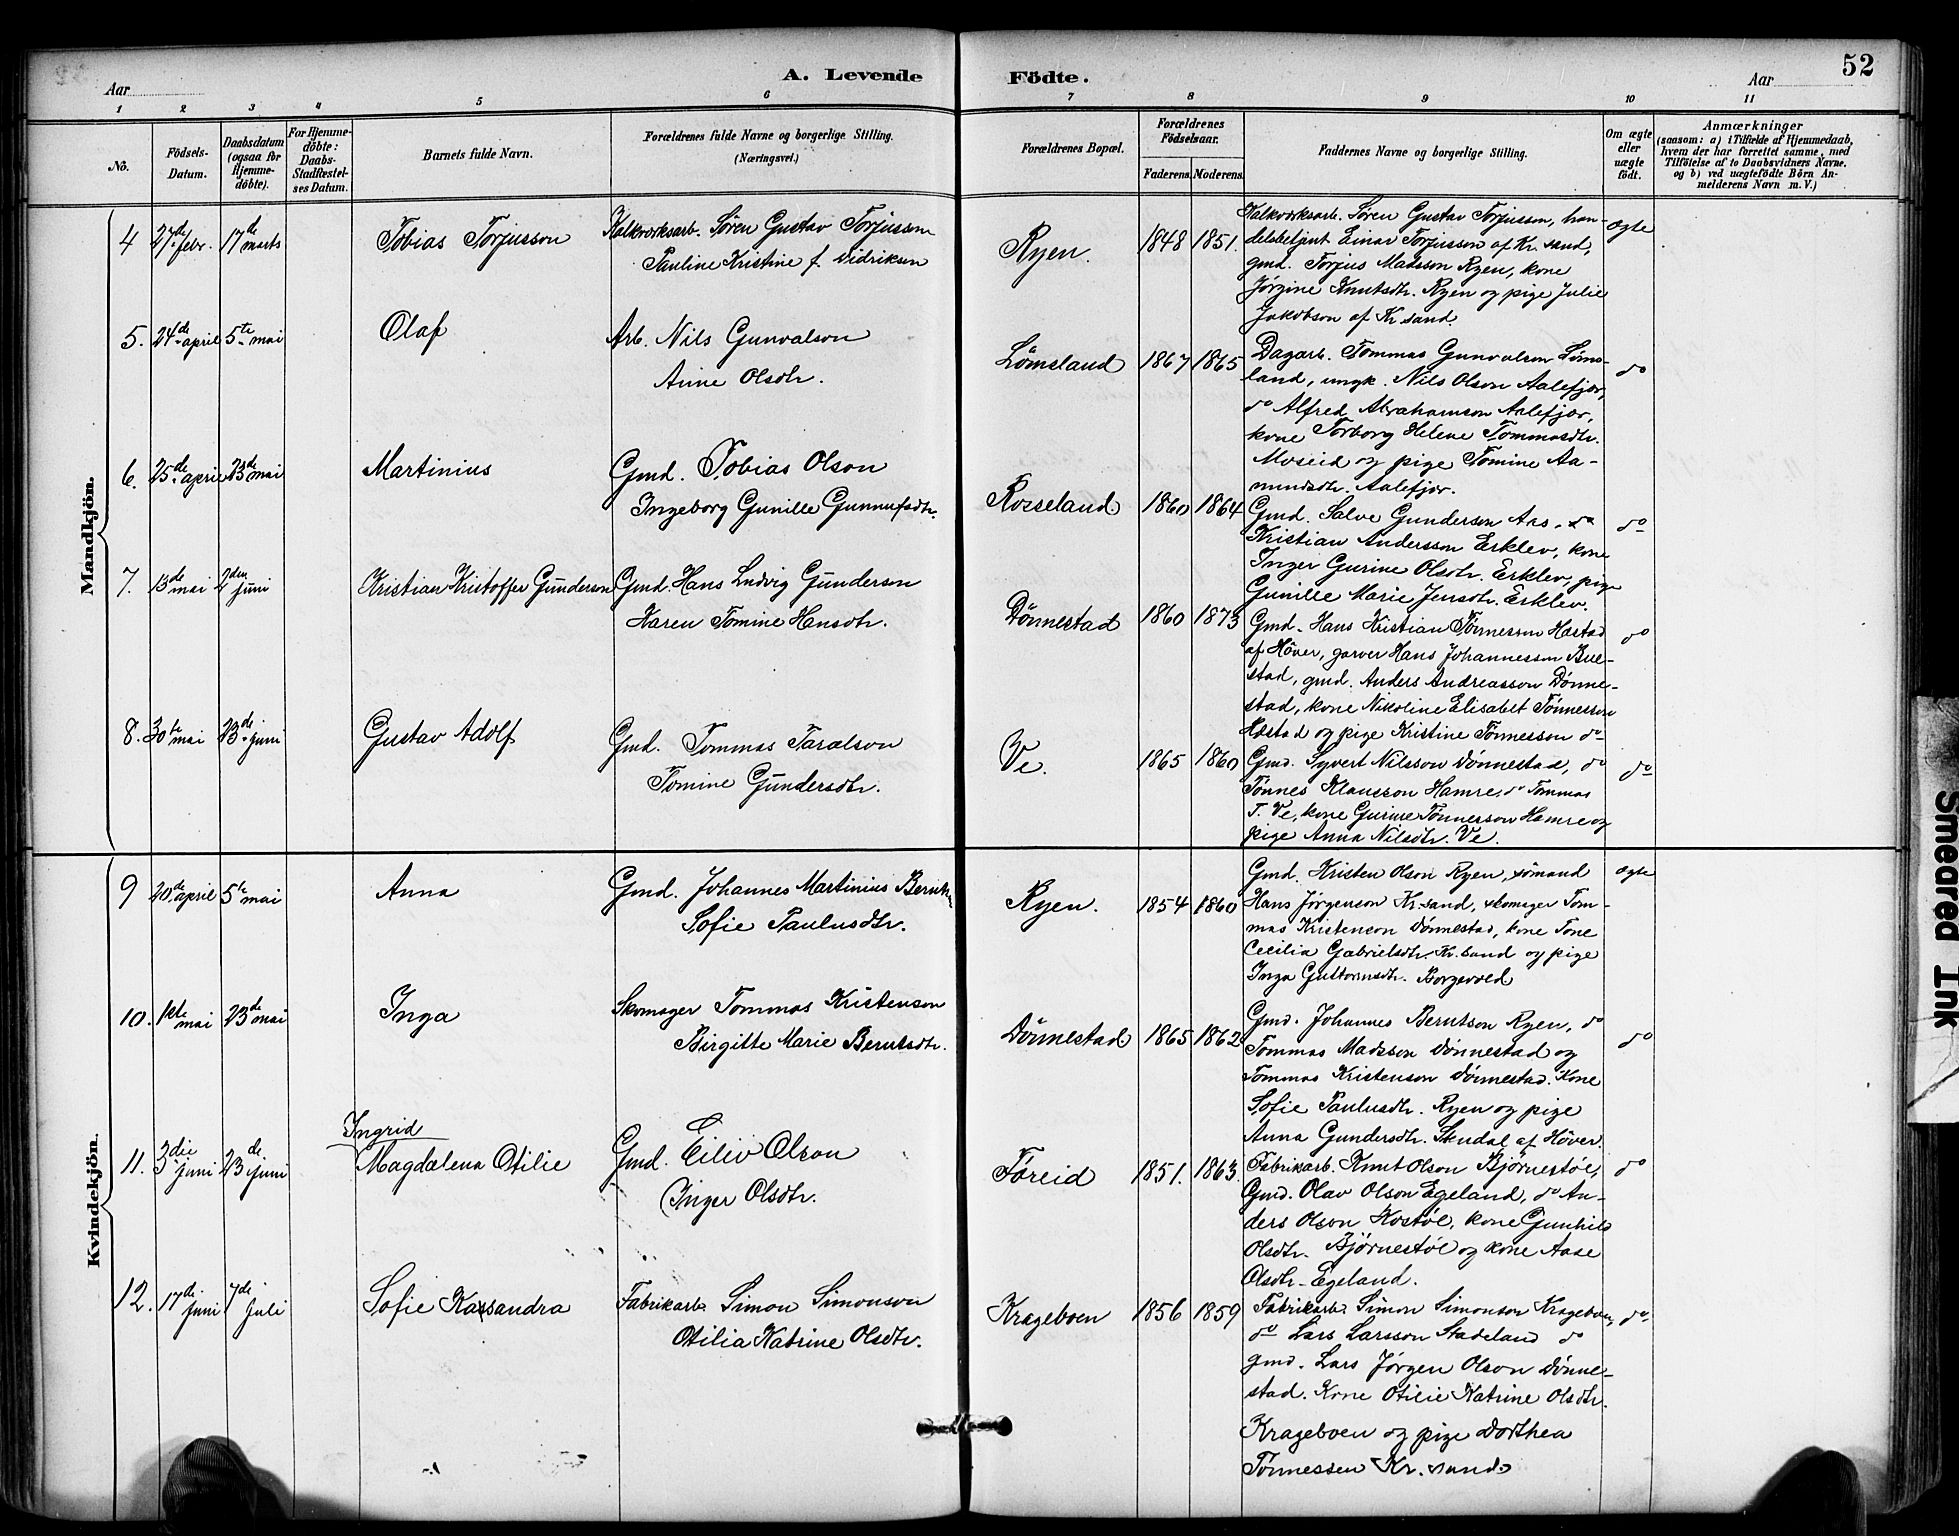 A. Levende Födte.
52
Aar
Aar
1 2 3 4 5 6 7 8 9 10 11
No.
Födsels-Datum.
Daabsdatum (ogsaa for Hjemme-döbte).
For Hjemme-döbte: Daabs-Stadfæstel-ses Datum.
Barnets fulde Navn.
Forældrenes fulde Navne og borgerlige Stilling.
(Næringsvei.)
Forældrenes Bopæl.
Forældrenes Födselsaar.
Faderens. Moderens.
Faddernes Navne og borgerlige Stilling.
Om ægte eller uægte födt.
Anmærkninger
(saasom: a) i Tilfælde af Hjemmedaab,
hvem der har forrettet samme, med
Tilföielse af to Daabsvidners Navne.
og b) ved uægtefödte Börn An-
melderens Navn m. V.)
Mandkjön.
4 27de febr. 17de marts Tobias Torjusson
Kalkværksarb. Søren Gustav Torjusson
Pauline Kristine f. Didriksen
Ryen. 1848 1851.
Kalkværksarb. Søren Gustav Torjusson, han-
delsbetjent Einar Torjusson af Kr.sand,
gmd. Torjus Madsson Ryen, kone
Jørgine Knutsdtr. Ryen og pige Julie
Jakobson af Kr.sand.
ægte
5. 24de april 5te mai Olaf
Arb. Nils Gunvalson
Anne Olsdtr.
Lømsland 1867 1865
Dagarb. Tommas Gunvalson Løms-
land, ungk. Nils Olson Aalefjær,
do Alfred Abrahamson Aalefjær,
kone Torborg Helene Tommasdtr.
Moseid og pige Tomine Aa-
mundsdtr. Aalefjær.
do
6. 25de april 23de mai Martinius
Gmd. Tobias Olson
Ingeborg Gunille Gunnufsdtr.
Rosseland 1860 1864
Gmd. Salve Gunderson Aas, do
Kristian Andersson Erklev, kone
Inger Gurine Olsdtr. Erklev, pige
Gunille Marie Jensdtr. Erklev.
do
7. 13de mai 2den juni Kristian Kristoffer Gunderson
Gmd. Hans Ludvig Gunderson
Karen Tomine Hansdtr.
Dønnestad 1860 1873
Gmd. Hans Kristian Tønnesson Hæstad
af Höver, garver Hans Johannesson Bue-
stad, gmd. Anders Andreasson Dønne-
stad, kone Nikoline Elisabet Tønnesson
Hæstad og pige Kristine Tønnesson do
do
8. 30te mai 23de juni Gustav Adolf
Gmd. Tommas Taralson
Tomine Gundersdtr.
Ve. 1865 1860
Gmd. Syvert Nilsson Dønnestad, do
Tønnes Klausson Hamre, do Tommas
T. Ve, kone Gurine Tønnesson Hamre og
pige Anna Nilsdtr. Ve.
do
Kvindekjön.
9 20de april 5te mai Anna
Gmd. Johannes Martinius
Sofie Paulusdtr.
Ryen. 1854 1860
Gmd. Kristen Olson Ryen, sømand
Hans Jørgenson Kr.sand, skomager Tom-
mas Kristenson Dønnestad, kone Tone
Cecilia Gabrielsdtr. Kr.sand og pige
Inga Guttormsdtr. Borgevold
ægte
10. 1ste mai 23de mai Inga
Skomager Tommas Kristenson
Birgitte Marie Berntsdtr.
Dønnestad 1865 1862
Gmd. Johannes Berntson Ryen, do
Tommas Madsson Dønnestad og
Tommas Kristenson Dønnestad. Kone
Sofie Paulusdtr. Ryen og pige
Anna Gundersdtr. Skudal af Höver.
do
11. 3die juni 23de juni Ingrid
Magdalena Otilie
Gmd. Eiliv Olson
Inger Olsdtr.
Føreid 1851. 1863.
Fabrikarb. Knut Olson Bjørnestøl,
Gmd. Olav Olson Egeland, do An-
ders Olson Kostøl, kone Gunhild
Olsdtr. Bjørnestøl og kone Aase
Olsdtr. Egeland.
do
12. 17de juni 7de juli Sofie Kassandra
Fabrikarb. Simon Simonson
Otilia Katrine Olsdtr.
Krageboen 1856 1859
Fabrikarb. Simon Simonson Krageboen,
do Lars Larsson Stadeland do
gmd. Lars Jørgen Olson Dønne-
stad. Kone Otilie Katrine Olsdtr.
Krageboen og pige Dorthea
Tønnessen Kr.sand.
do.
Smeared Ink